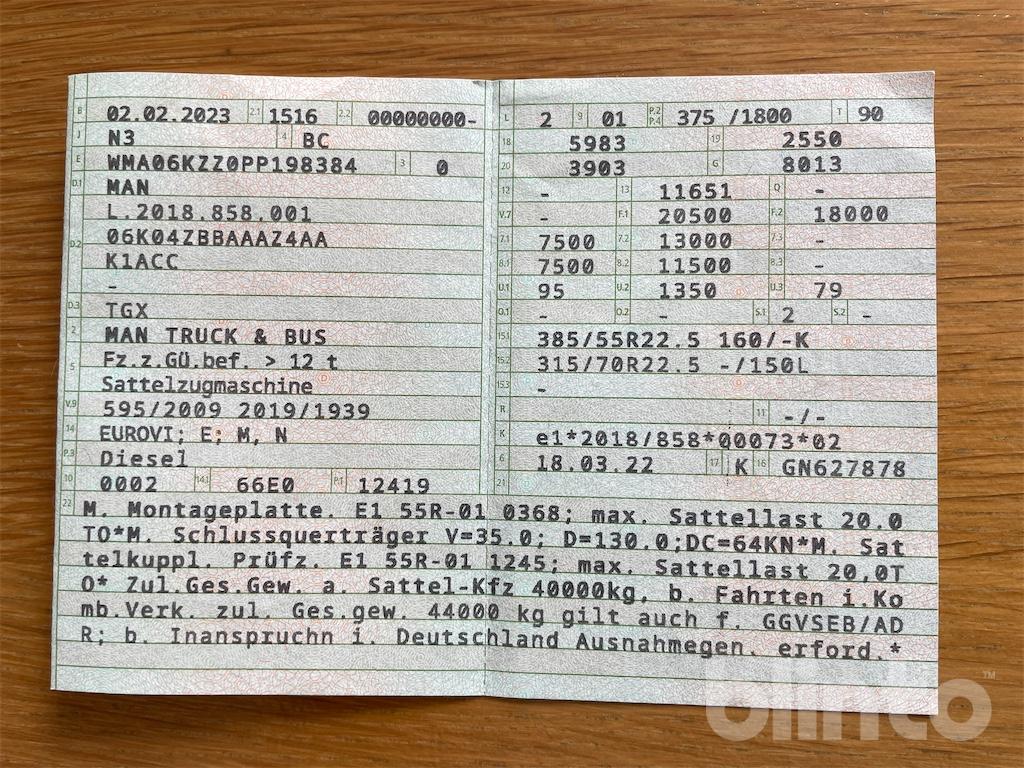 B 02.02.2023 2.1 1516 2.2 00000000-
J N3 4 BC
E WMA06KZZ0PP198384 3 0
D.1 MAN
L.2018.858.001
D.2 06K04ZBBAAAZ4AA
K1ACC
-
D.3 TGX
2 MAN TRUCK & BUS
5 Fz.z.Gü.bef. > 12 t
Sattelzugmaschine
V.9 595/2009 2019/1939
14 EUROVI; E; M, N
P.3 Diesel
10 0002 14.1 66E0 P.1 12419
L 2 9 01 P.2 P.4 375 /1800 T 90
18 5983 19 2550
20 3903 G 8013
12 - 13 11651 Q -
V.7 - F.1 20500 F.2 18000
7.1 7500 7.2 13000 7.3 -
8.1 7500 8.2 11500 8.3 -
U.1 95 U.2 1350 U.3 79
O.1 - O.2 - S.1 2 S.2 -
15.1 385/55R22.5 160/-K
15.2 315/70R22.5 -/150L
15.3 -
R 11 -/-
K e1*2018/858*00073*02
6 18.03.22 17 K 16 GN627878
21
22 M. Montageplatte. E1 55R-01 0368; max. Sattellast 20.0
TO*M. Schlussquerträger V=35.0; D=130.0;DC=64KN*M. Sat
telkuppl. Prüfz. E1 55R-01 1245; max. Sattellast 20,0T
O* Zul.Ges.Gew. a. Sattel-Kfz 40000kg, b. Fahrten i.Ko
mb.Verk. zul. Ges.gew. 44000 kg gilt auch f. GGVSEB/AD
R; b. Inanspruchn i. Deutschland Ausnahmegen. erford.*
blinto™